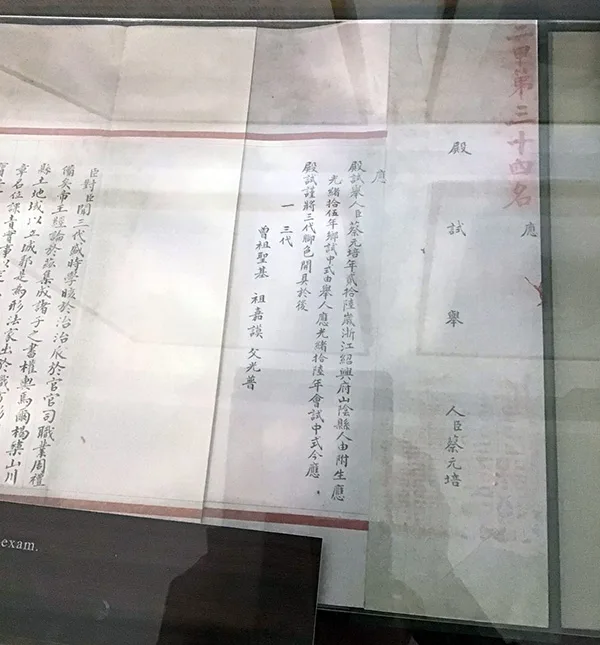 二甲第三十四名
應
殿試舉人臣蔡元培
應
殿試舉人臣蔡元培年貳拾陸歲浙江紹興府山陰縣人由附生應
光緒拾伍年鄉試中式由舉人應光緒拾陸年會試中式今應
殿試謹將三代腳色開具於後
一 三代
曾祖聖基 祖嘉謨 父光普
臣對臣聞三代盛時學賅於治治於官官司職業周禮
備矣帝王經論於焉集成諸子之書權輿焉爾山川
縣土地域以立城郭是為形法家出於職方
章名位課責實事以定
exam.